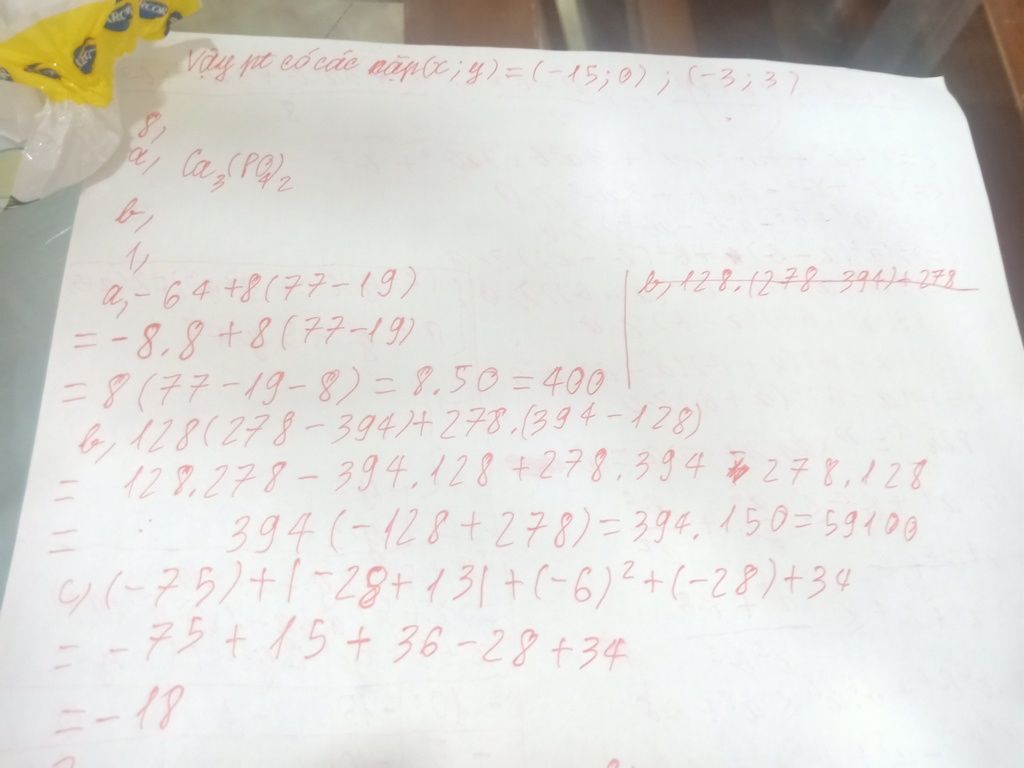 ARCOR
Vậy pt có các cặp (x; y) = (-15; 0) ; (-3; 3)
8,
a, Ca3(PO4)2
b,
1,
a, -64 + 8(77 - 19)
= -8.8 + 8(77-19)
= 8(77 - 19 - 8) = 8.50 = 400
b, 128.(278 - 394) + 278
b, 128(278 - 394) + 278.(394 - 128)
= 128.278 - 394.128 + 278.394 - 278.128
= 394(-128 + 278) = 394.150 = 59100
c, (-75) + |-28 + 13| + (-6)² + (-28) + 34
= -75 + 15 + 36 - 28 + 34
= -18